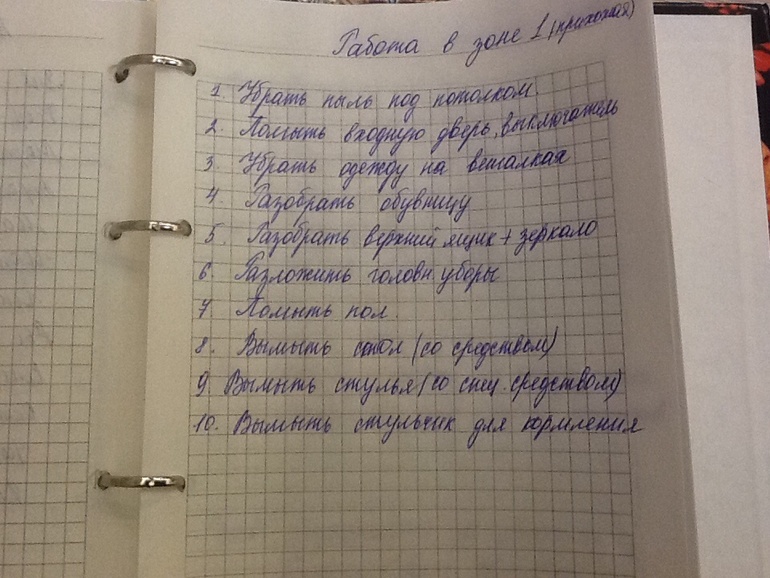 Работа в зоне 1 (прихожая)
1. Убрать пыль под потолком
2. Помыть входную дверь, выключатель
3. Убрать одежду на вешалках
4 Разобрать обувницу
5. Разобрать верхний ящик + зеркало
6. Разложить головн. уборы
7. Помыть пол.
8. Вымыть стол (со средством)
9 Вымыть стулья (со спец. средством)
10. Вымыть стульчик для кормления